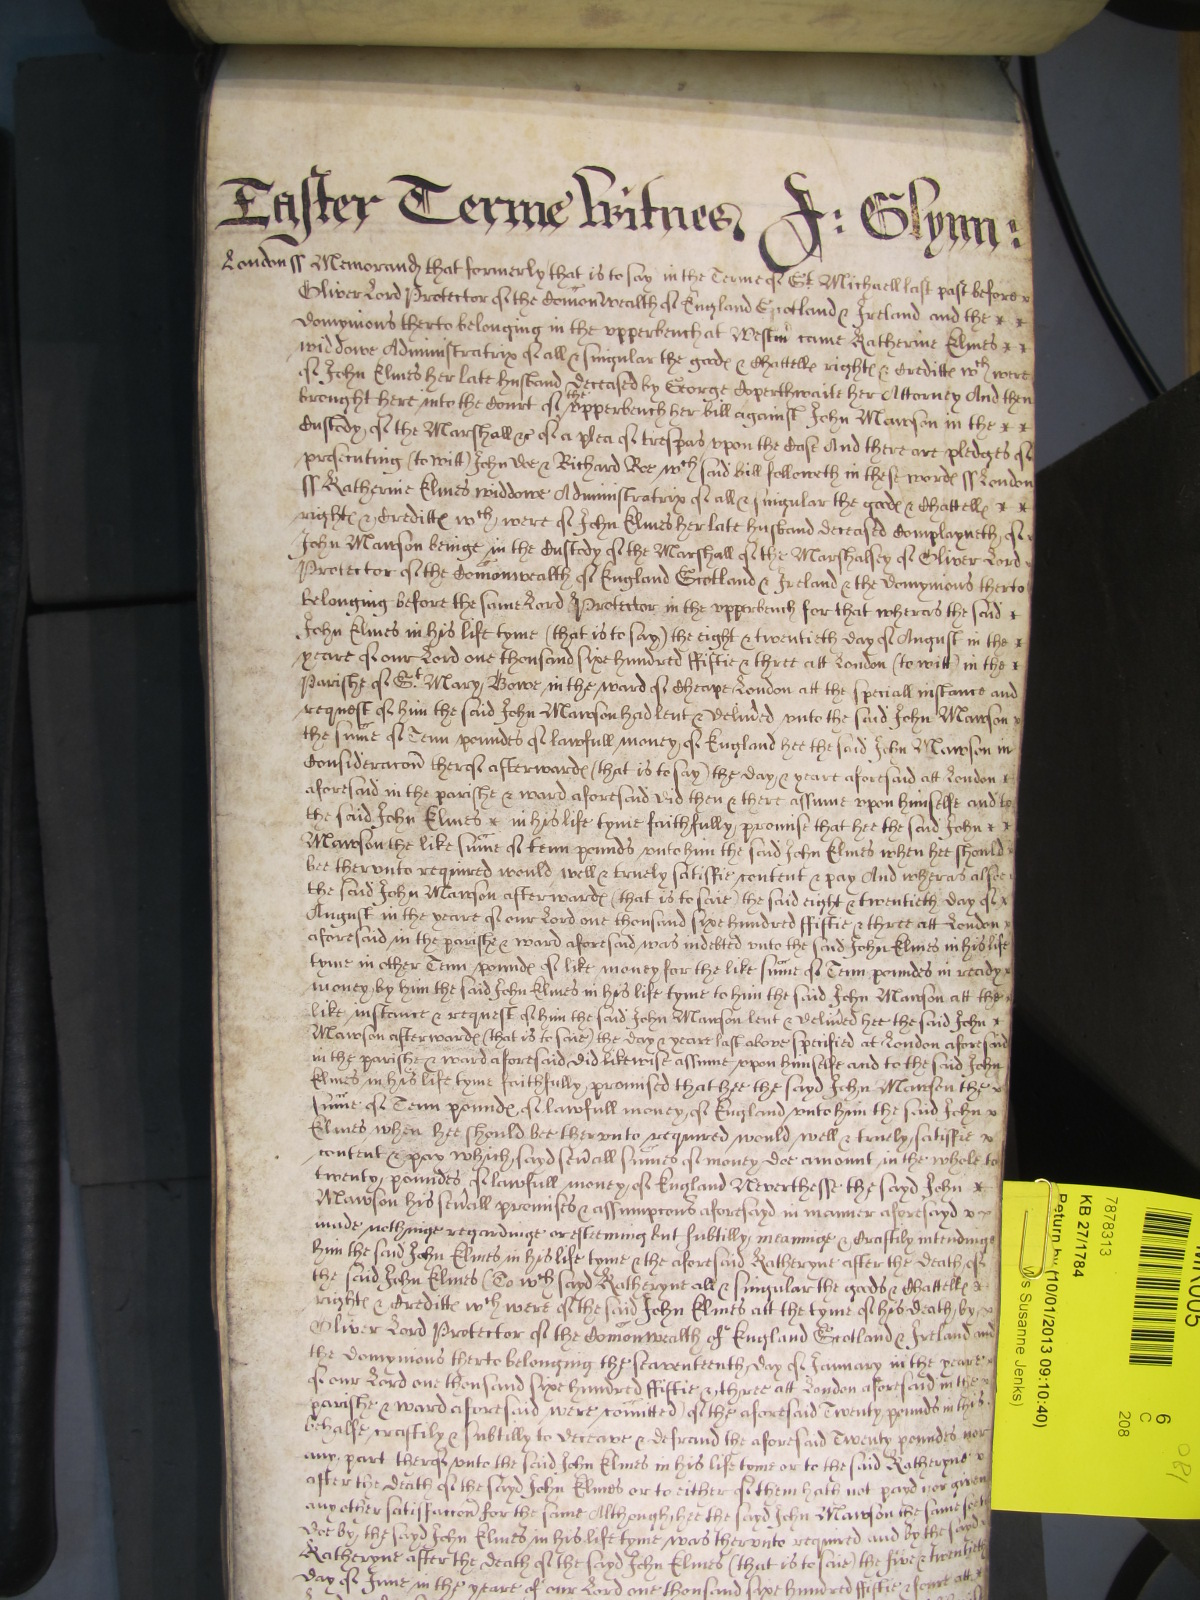 Easter Terme Witnes J: Glynn:
London ss Memorand that formerly that is to say in the Terme of St Michaell last past before
Oliver Lord Protector of the Comonwealth of England Scotland & Ireland and the
domynions therto belonging in the upperbench at Westm came Katherine Elmes
widdowe Administratrix of all & singular the goods & Chattells rights & Creditts wch were
of John Elmes her late husband deceased by George Copperthwaite her Attorney And then
brought here into the Court of the upperbench her bill against John Mawson in the
Custody of the Marshall &c of a plea of trespas upon the Case And there are pledges of
prosecuting (to witt) John Doe & Richard Roe wch said bill followeth in these words ss London
ss Katherine Elmes widdowe Administratrix of all & singular the goods & Chattells
rights & Creditts wch were of John Elmes her late husband deceased Complayneth of
John Mawson beinge in the Custody of the Marshall of the Marshalsey of Oliver Lord
Protector of the Comonwealth of England Scotland & Ireland & the domynions therto
belonging before the same Lord Protector in the upperbench for that wheras the said
John Elmes in his life tyme (that is to say) the eight & twentieth day of August in the
yeare of our Lord one thousand sixe hundred ffiftie & three att London (to witt) in the
Parishe of St Mary Bowe in the ward of Cheape London att the speciall instance and
request of him the said John Mawson had lent & delivred unto the said John Mawson
the sume of Tenn poundes of lawfull money of England hee the said John Mawson in
Consideracon therof afterwards (that is to say) the day & yeare aforesaid att London
aforesaid in the parishe & ward aforesaid did then & there assume upon himselfe and to
the said John Elmes in his life tyme faithfully promise that hee the said John
Mawson the like sume of tenn pounds unto him the said John Elmes when hee should
bee therunto required would well & truely satisfie content & pay And wheras alsoe
the said John Mawson afterwards (that is to saie) the said eight & twentieth day of
August in the yeare of our Lord one thousand sixe hundred ffiftie & three att London
aforesaid in the parishe & ward aforesaid was indebted unto the said John Elmes in his life
tyme in other Tenn pounds of like money for the like sume of Tenn poundes in ready
money by him the said John Elmes in his life tyme to him the said John Mawson att the
like instance & request of him the said John Mawson lent & delivred hee the said John
Mawson afterwards (that is to saie) the day & yeare last above specified at London aforesaid
in the parishe & ward aforesaid did likewise assume upon himselfe and to the said John
Elmes in his life tyme faithfully promised that hee the sayd John Mawson the
sume of Tenn pounds of lawfull money of England unto him the said John
Elmes when hee should bee therunto required would well & truely satisfie
content & pay which sayd sevrall sumes of money doe amount in the whole to
twenty poundes of lawfull money of England Neverthesse the sayd John
Mawson his sevrall promises & assumpcons aforesayd in manner aforesayd
made nothinge regardinge or esteeming but subtilly meaninge & craftily intendinge
him the said John Elmes in his life tyme & the aforesaid Katheryne after the death of
the said John Elmes (To wch sayd Katheryne all & singular the goods & Chattells
rights & Creditts wch were of the said John Elmes att the tyme of his death by
Oliver Lord Protector of the Comonwealth of England Scotland & Ireland and
the domynions therto belonging the seaventeenth day of January in the yeare
of our Lord one thousand sixe hundred ffiftie & three att London aforesaid in the
parishe & ward aforesaid were comitted) of the aforesaid Twenty pounds in this
behalfe craftily & subtilly to deceave & defraud the aforesaid Twenty poundes nor
any part therof unto the said John Elmes in his life tyme or to the said Katheryne
after the death of the sayd John Elmes or to either of them hath not payd nor given
any other satisfaccon for the same Although hee the sayd John Mawson the same soe to
doe by the sayd John Elmes in his life tyme was therunto required and by the sayd
Katheryne after the death of the sayd John Elmes (that is to saie) the five & twentieth
day of June in the yeare of our Lord one thousand sixe hundred ffiftie & foure att
7878313
KB 27/1784
Return by (10/01/2013 09:10:40)
Ms Susanne Jenks)
6
C
208